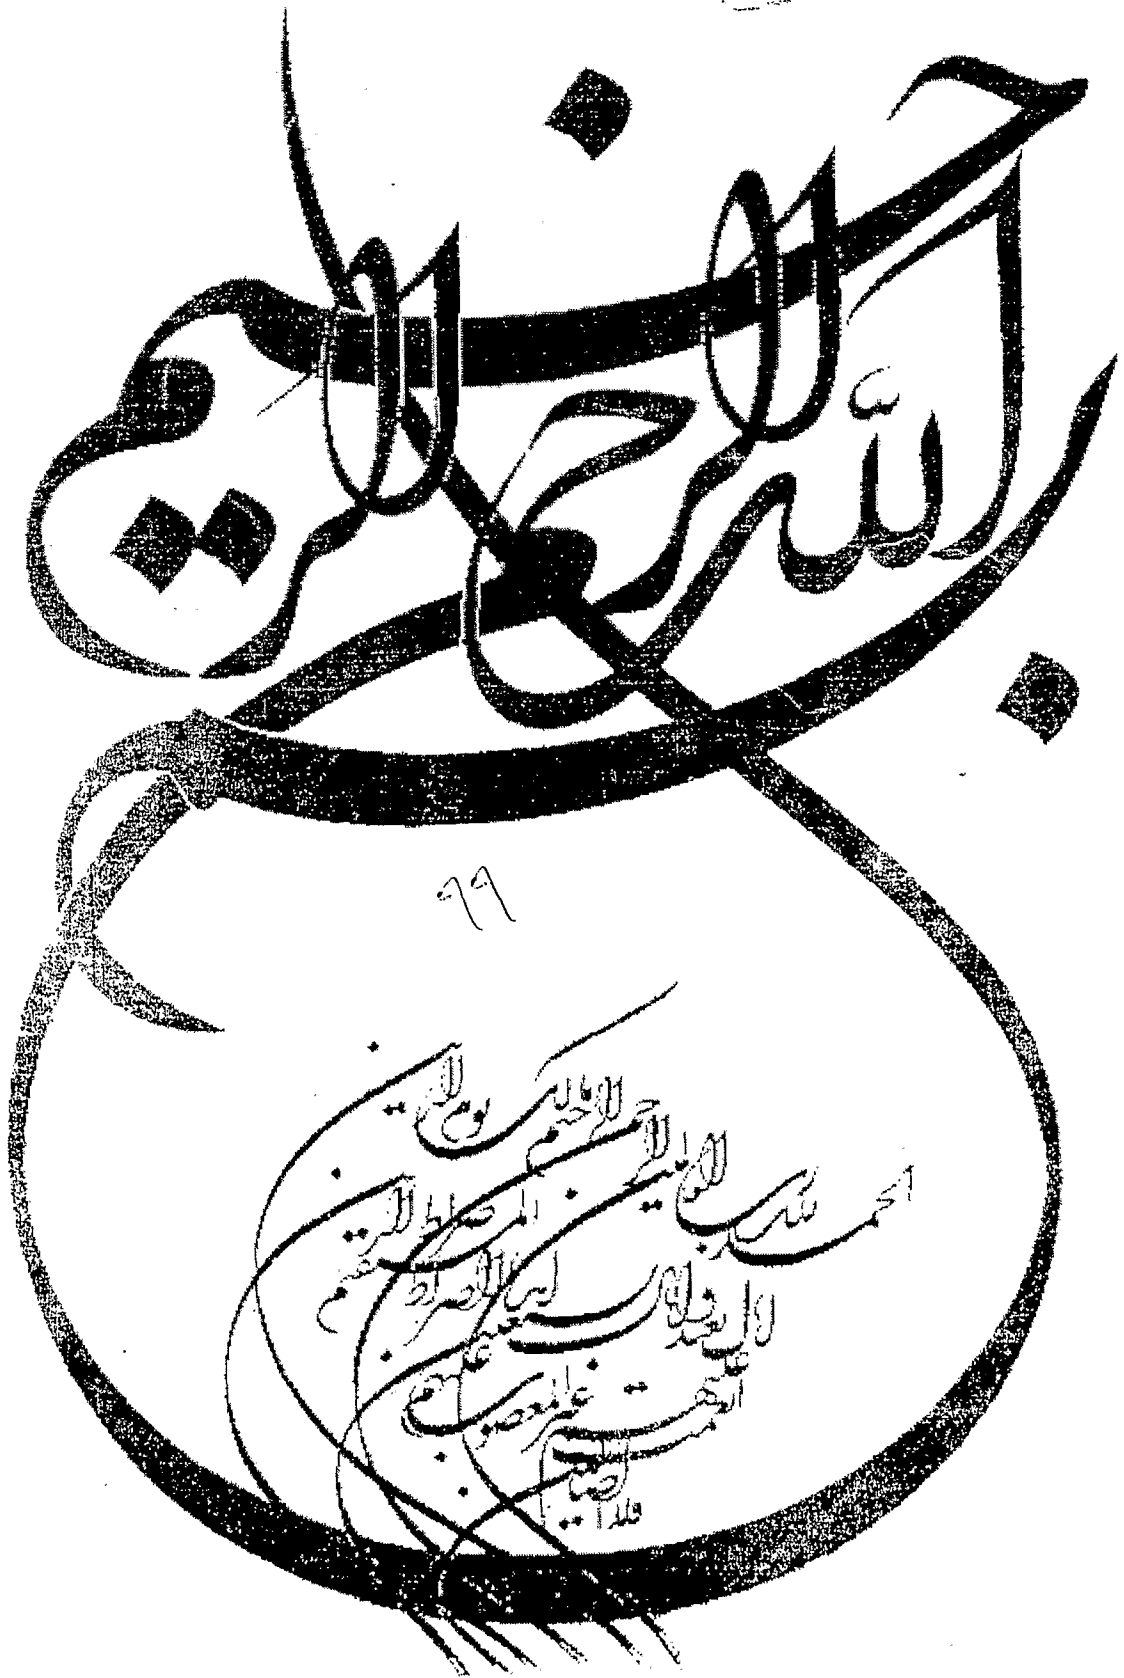 بسم الله الرحمن الرحيم
۹۹
الحمد لله رب العالمين
الرحمن الرحيم مالك يوم الدين
اياك نعبد واياك نستعين
اهدنا الصراط المستقيم صراط الذين
انعمت عليهم غير المغضوب عليهم
ولا الضالين